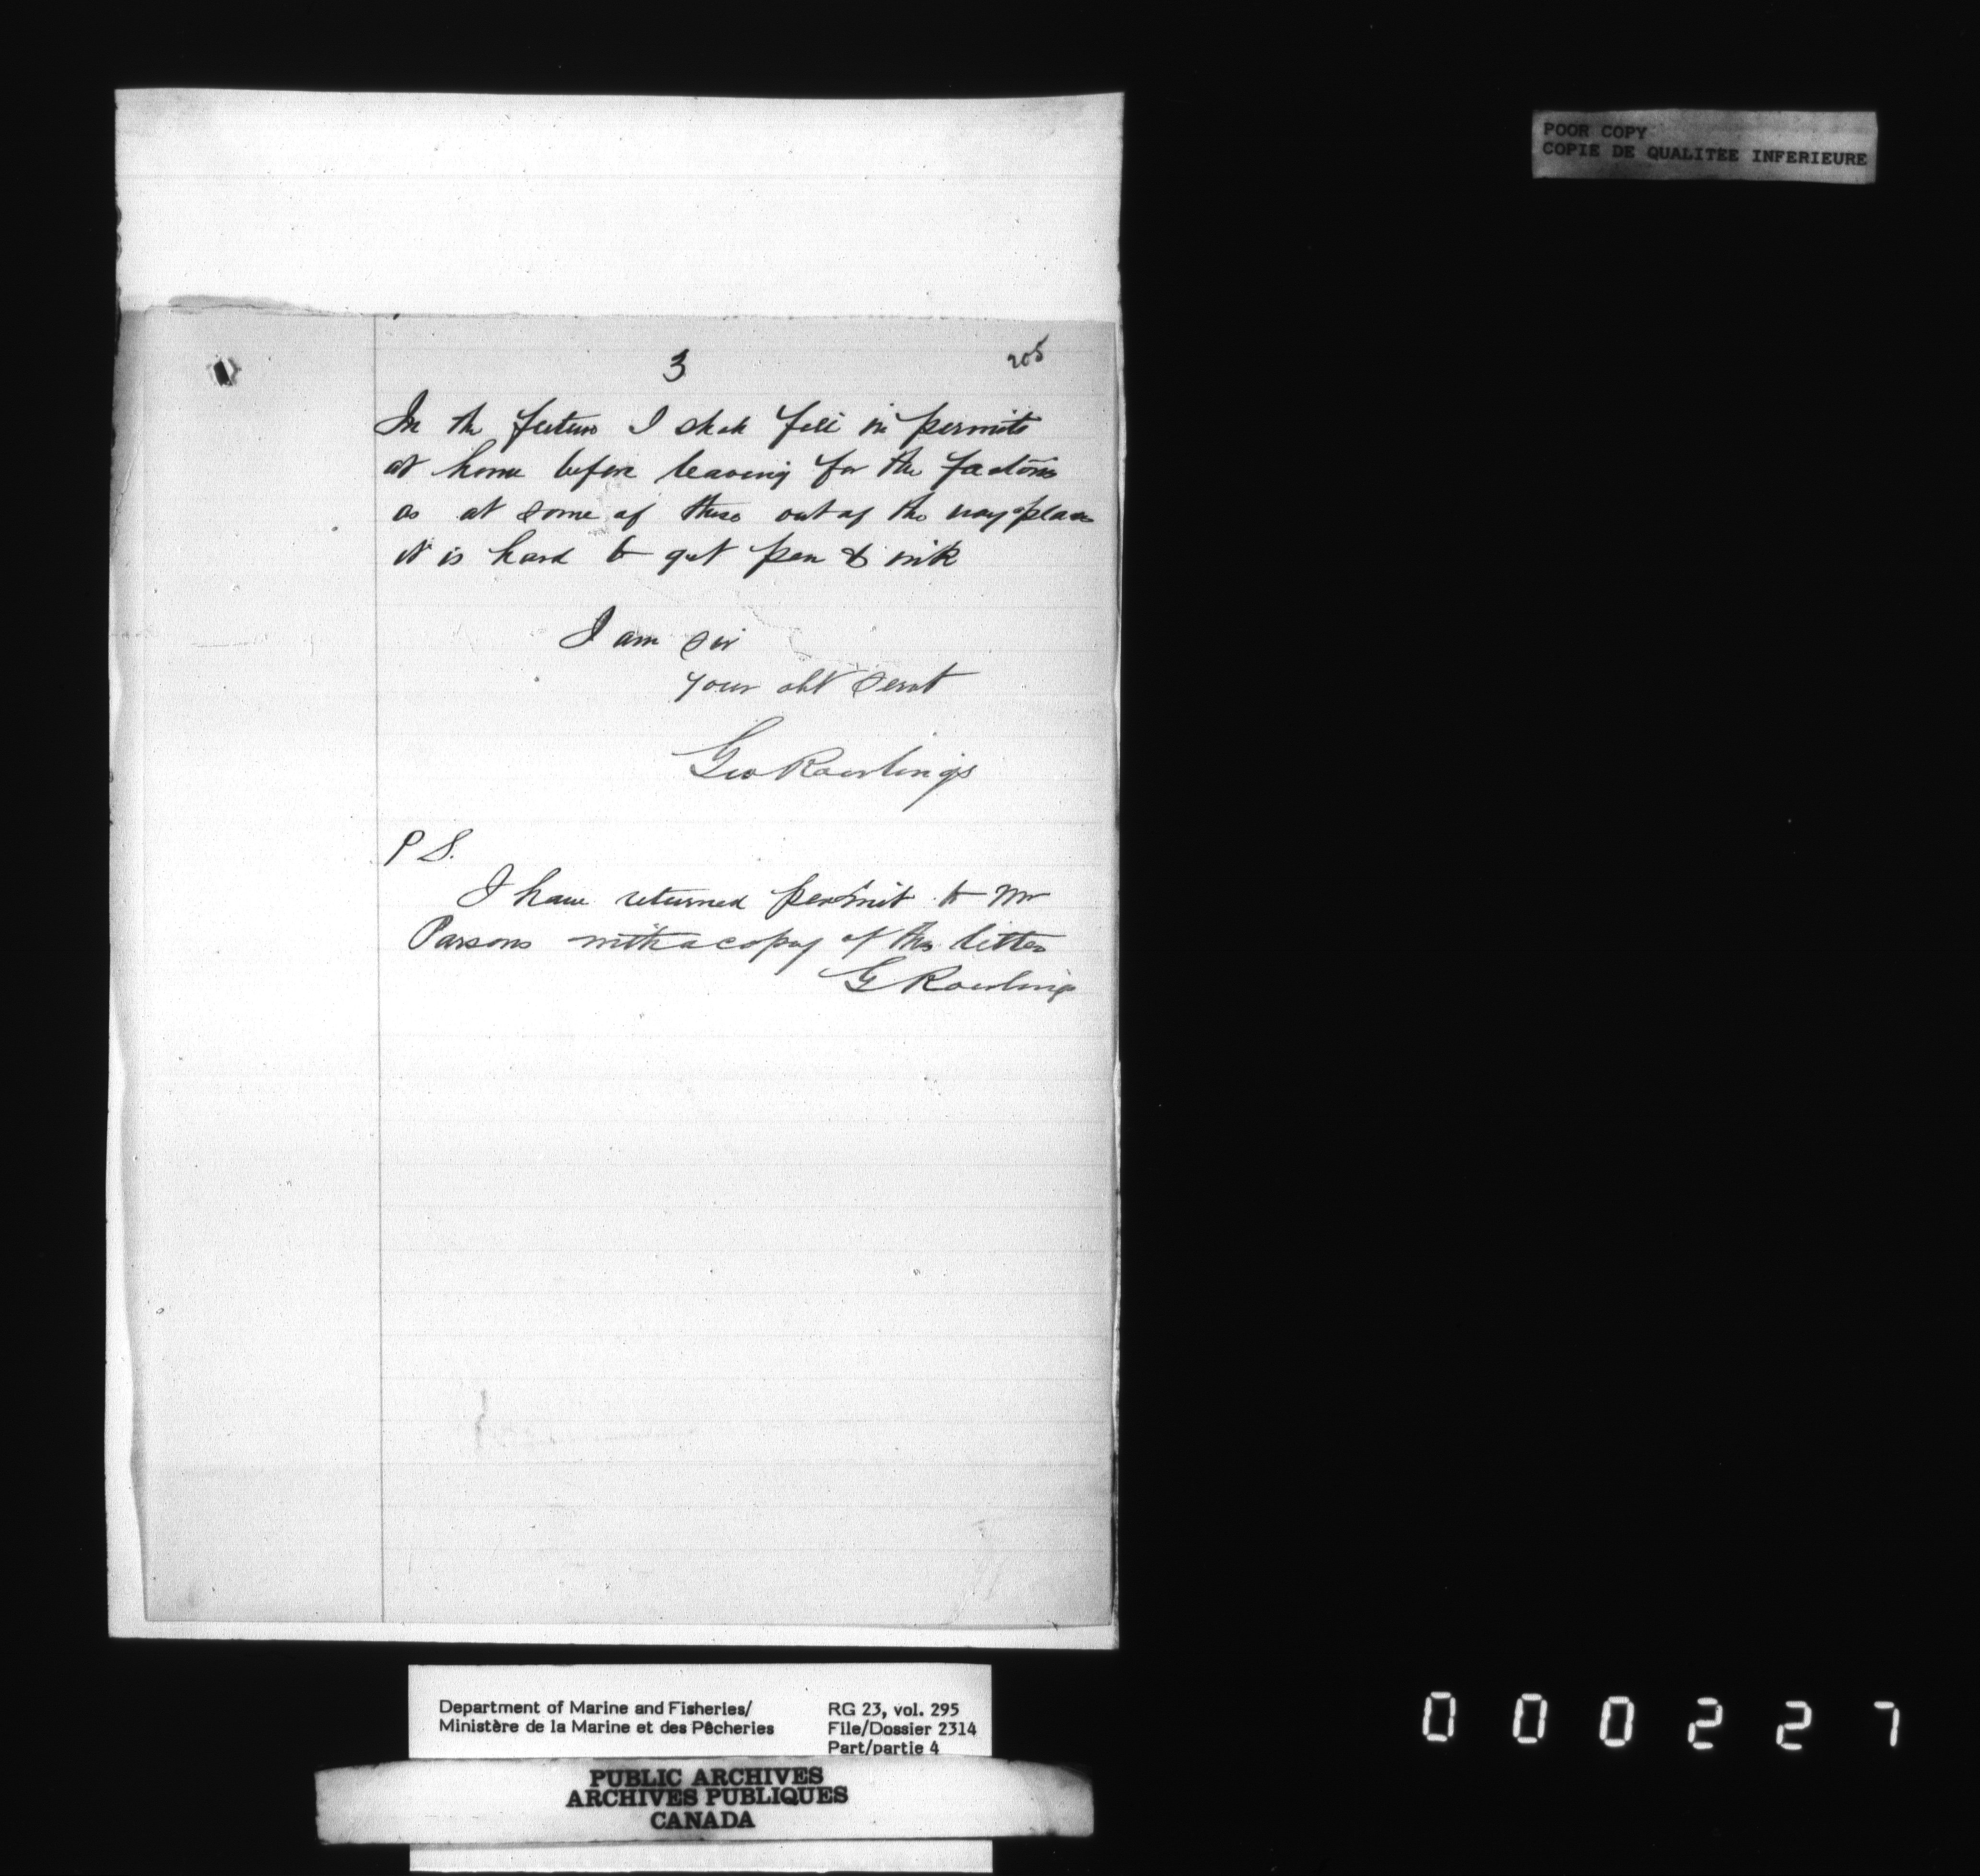 POOR COPY
COPIE DE QUALITEE INFERIEURE
3
205
In the future I shall fill in permits
at home before leaving for the factories
as at some of these out of the way places
it is hard to get pen & ink
I am sir
your obt servt
Geo Rowlings
P S.
I have returned permit to Mr
Parsons with a copy of this letter
G Rowlings
Department of Marine and Fisheries/ RG 23, vol. 295
Ministère de la Marine et des Pêcheries File/Dossier 2314
Part/partie 4
PUBLIC ARCHIVES
ARCHIVES PUBLIQUES
CANADA
000227